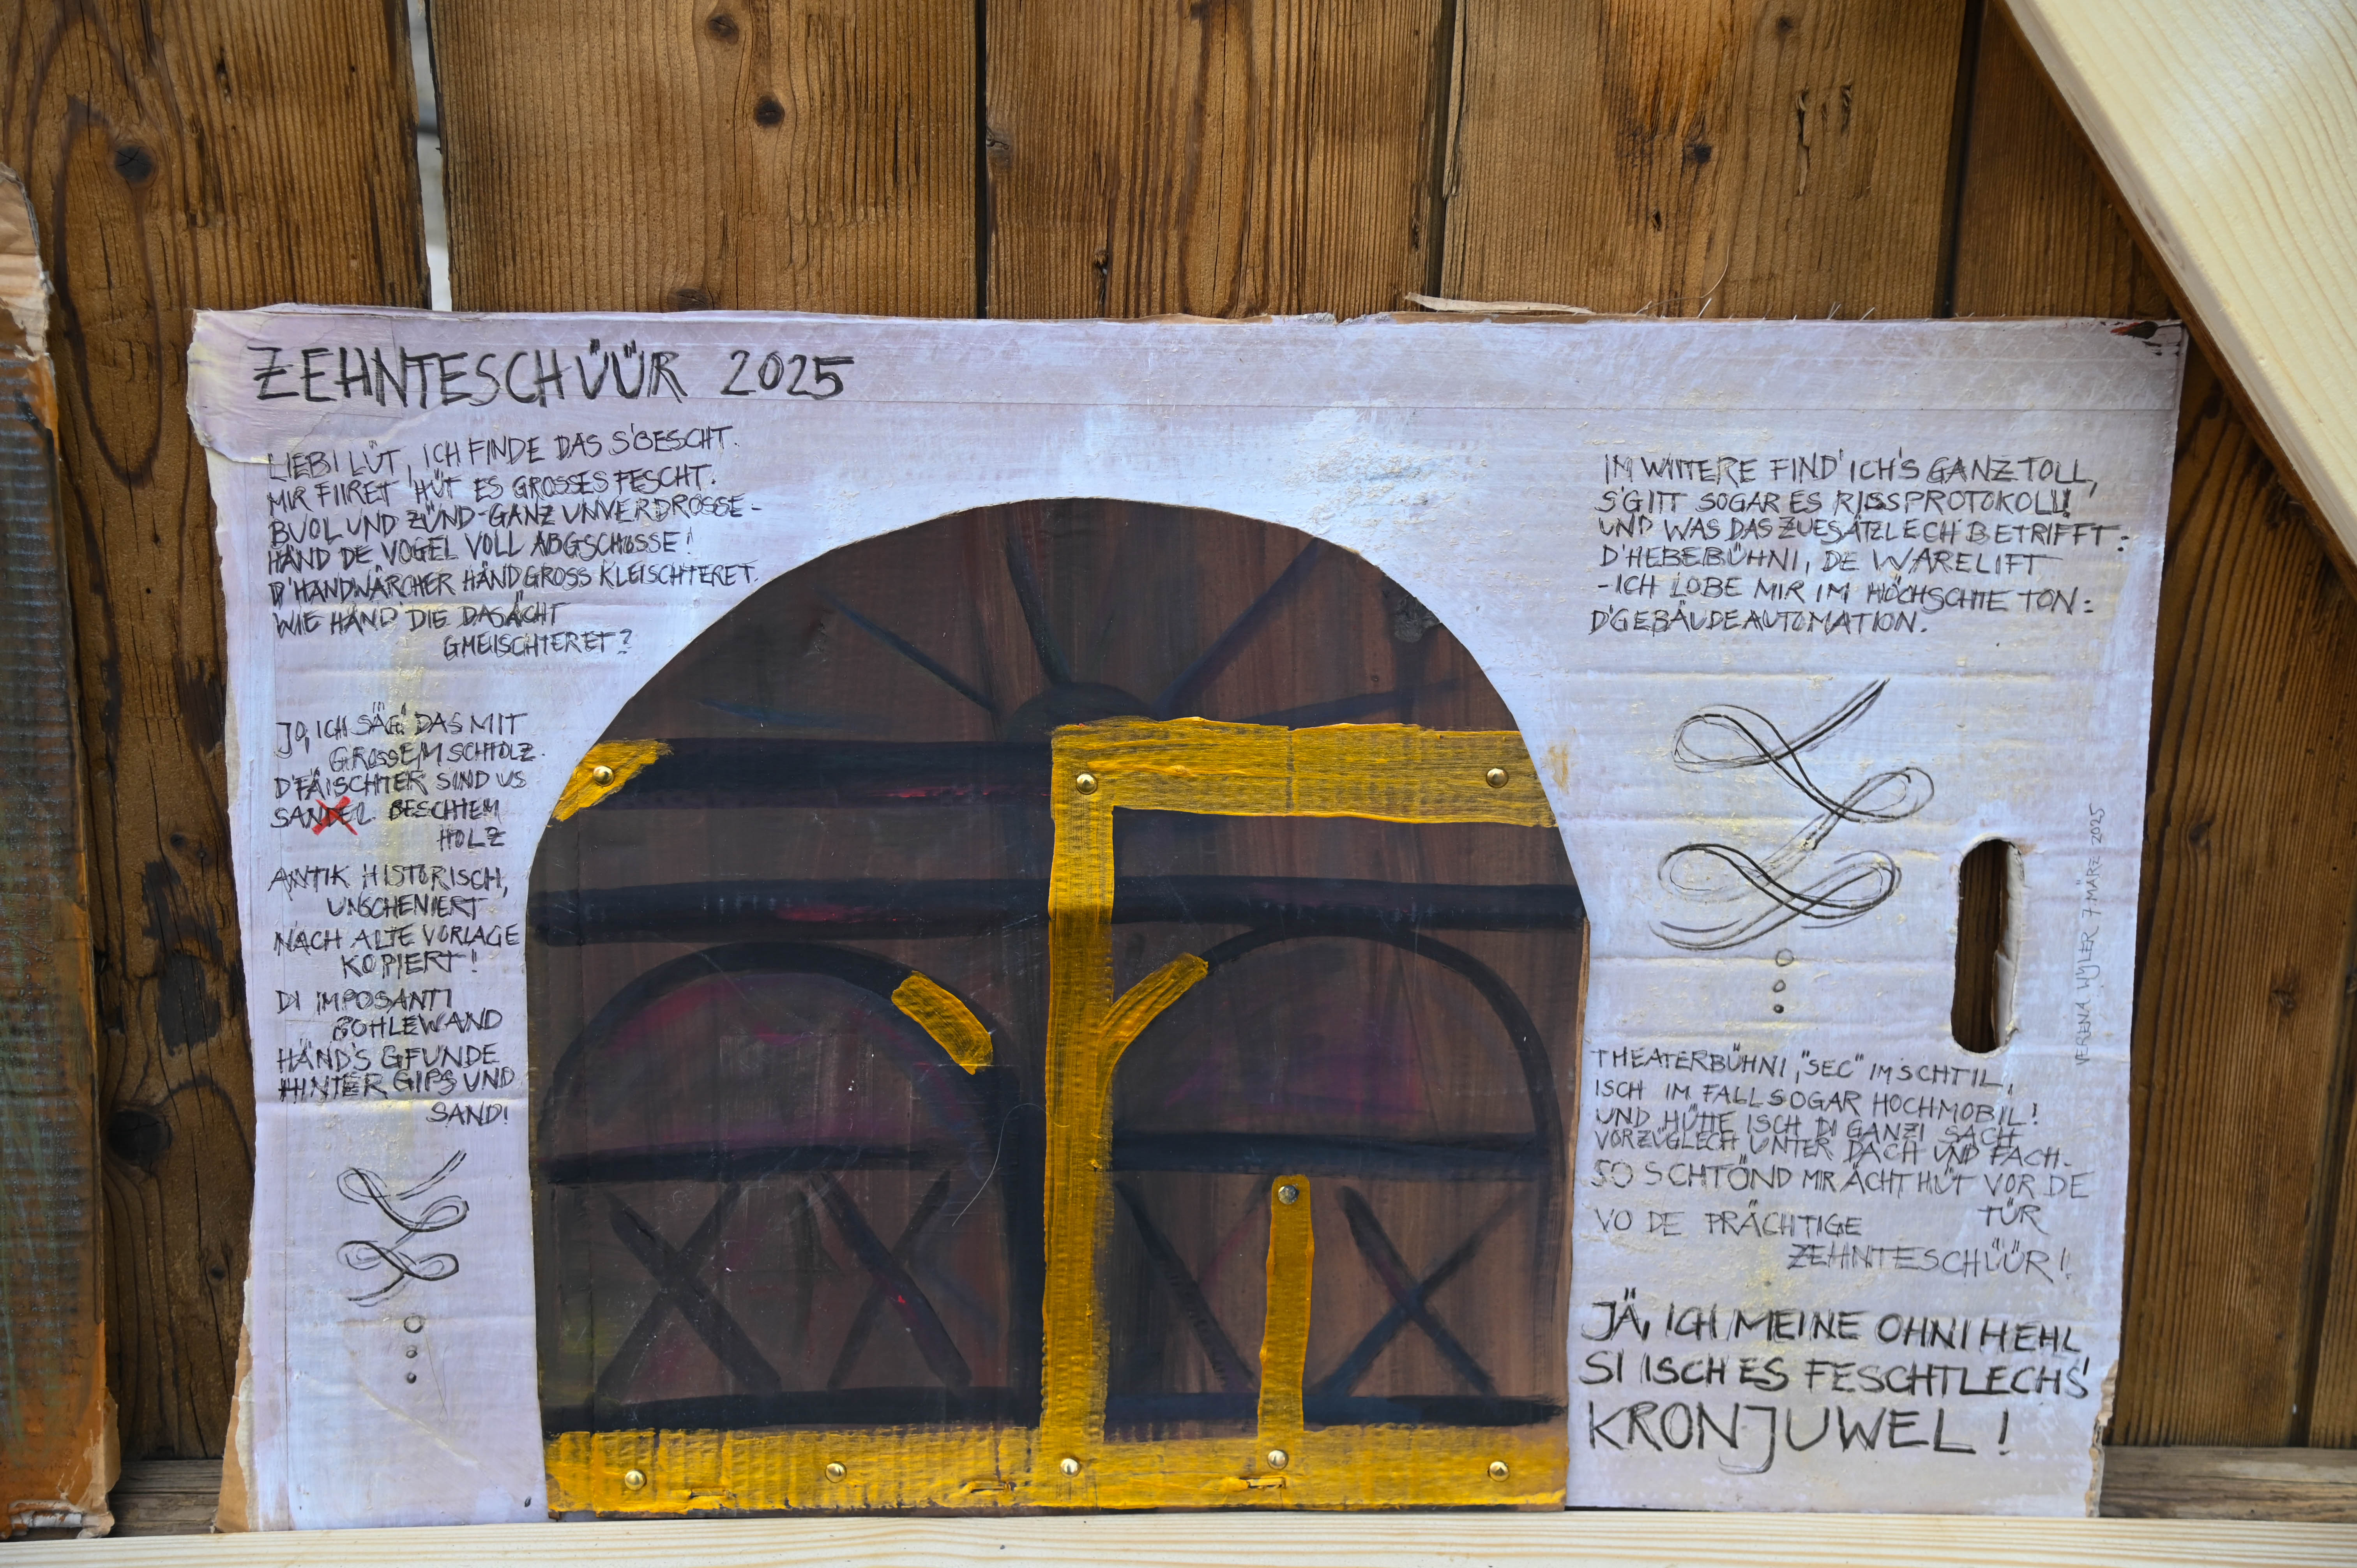 ZEHNTESCHÜÜR 2025
LIEBI LÜT, ICH FINDE DAS S'BESCHT.
MIR FIIRET HÜT ES GROSSES FESCHT.
BUOL UND ZÜND - GANZ UNVERDROSSE -
HÄND DE VOGEL VOLL ABGSCHOSSE!
D'HANDWÄRCHER HÄND GROSS KLEISCHTERET.
WIE HÄND DIE DAS ÄCHT
GMEISCHTERET?
JO, ICH SÄG DAS MIT
GROSSEM SCHTOLZ.
D'FÄISCHTER SIND US
BESCHTEM
HOLZ
ANTIK HISTORISCH,
UNSCHENIERT
NACH ALTE VORLAGE
KOPIERT!
DI IMPOSANTI
BOHLEWAND
HÄND'S GFUNDE
HINTER GIPS UND
SAND!
IM WIITERE FIND' ICH'S GANZ TOLL,
S'GITT SOGAR ES RISSPROTOKOLL!
UND WAS DAS ZUESÄTZLECH BETRIFFT:
D'HEBEBÜHNI, DE WARELIFT
- ICH LOBE MIR IM HÖCHSCHTE TON:
D'GEBÄUDEAUTOMATION.
THEATERBÜHNI, "SEC" IM SCHTIL,
ISCH IM FALL SOGAR HOCHMOBIL!
UND HÜTTE ISCH DI GANZI SACH
VORZÜGLECH UNTER DACH UND FACH.
SO SCHTÖND MIR ÄCHT HÜT VOR DE
TÜR
VO DE PRÄCHTIGE
ZEHNTESCHÜÜR!
JÄ, ICH MEINE OHNI HEHL
SI ISCH ES FESCHTLECHS
KRONJUWEL!
VERENA WYLER 7. MÄRZ 2025